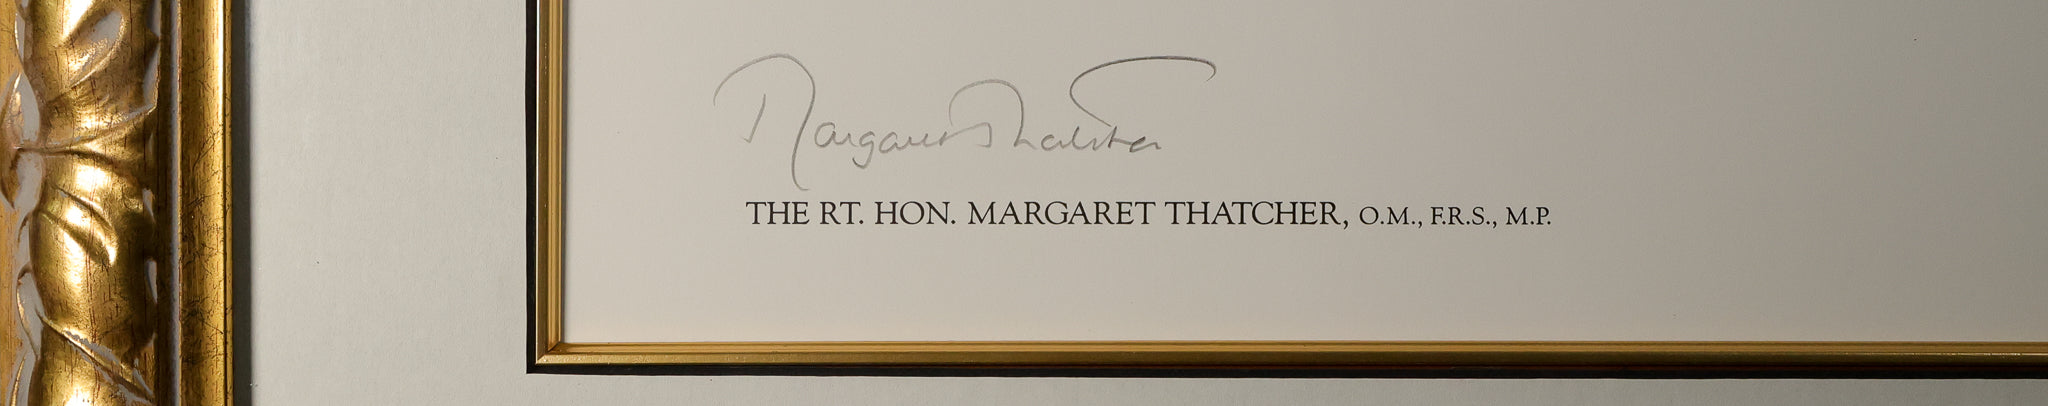 Margaret Thatcher
THE RT. HON. MARGARET THATCHER, O.M., F.R.S., M.P.